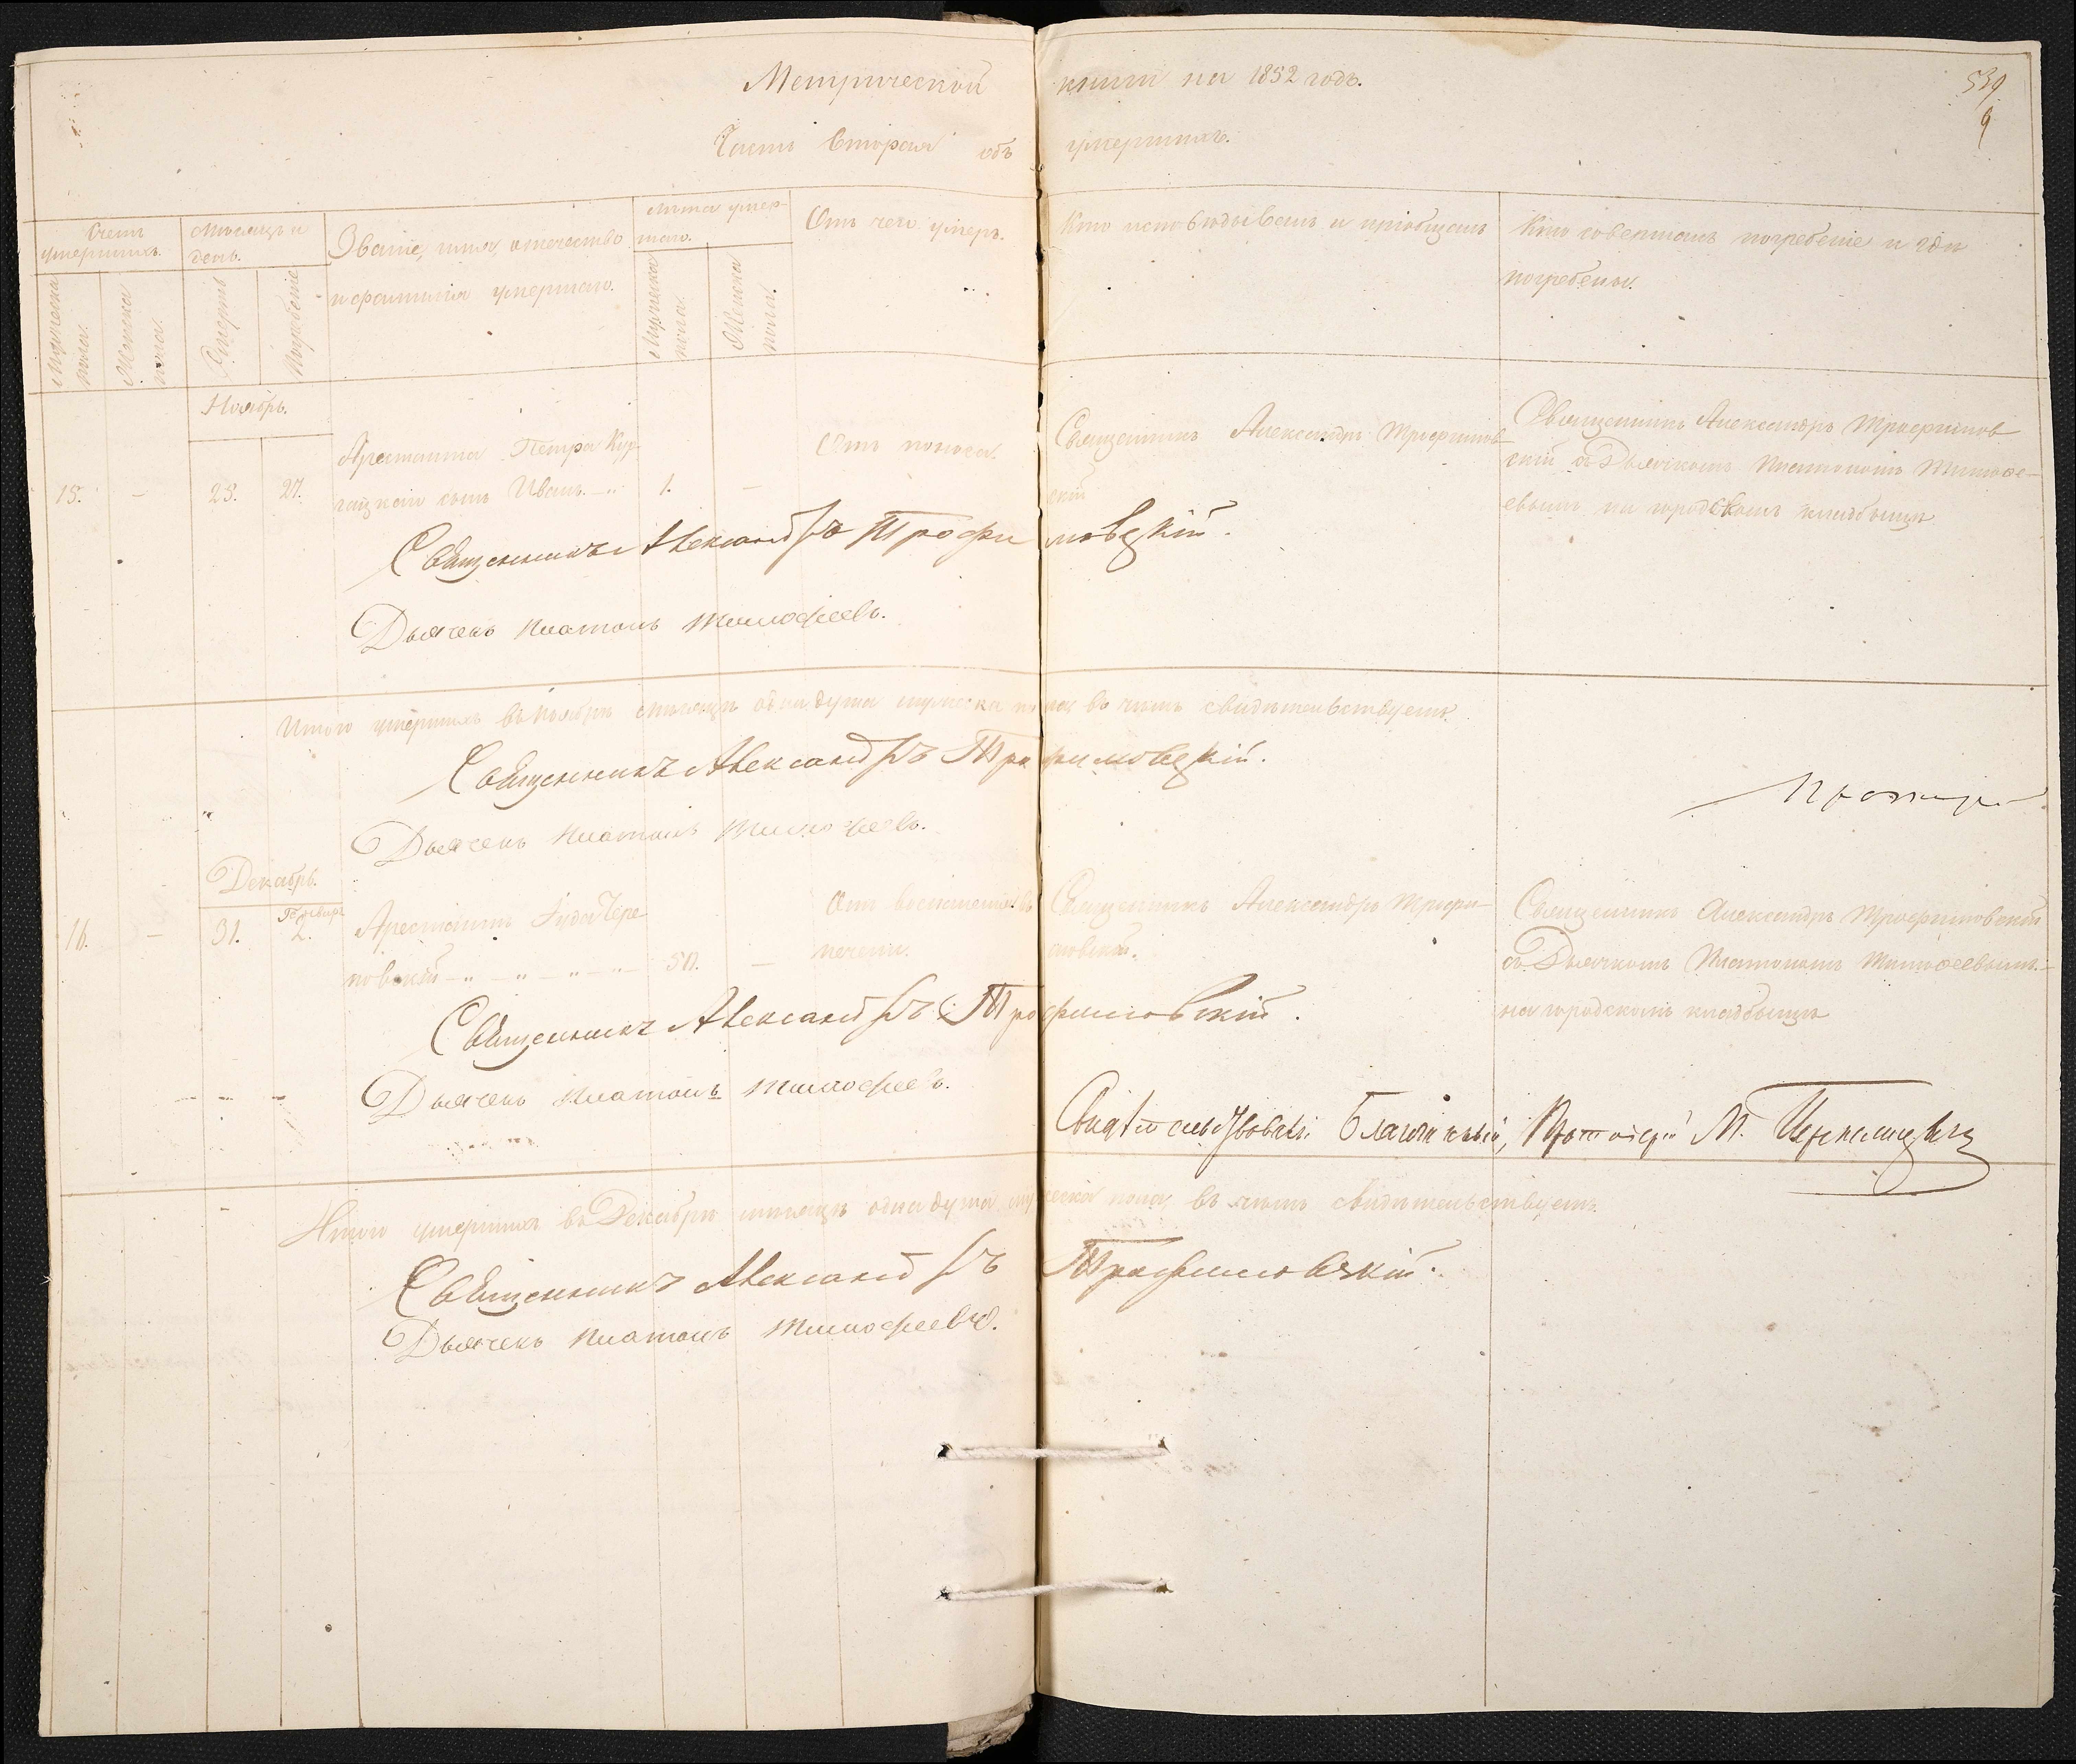 Метрической книги на 1852 годъ.
539
9
Часть вторая объ умершихъ.
Счетъ умершихъ.
Мужеска пола.
Женска пола.
Мѣсяцъ и день.
Смерть
Погребенiе
Званiе, имя, отечество и фамилiя умершаго.
Лѣта умершаго.
Мужеска пола.
Женска пола.
Отъ чего умеръ.
Кто исповѣдывалъ и прiобщалъ
Кто совершалъ погребенiе и гдѣ
погребены.
Ноябрь.
15. — 25. 27.
Арестанта Петра
сынъ Иванъ 1. —
Отъ поноса.
Священникъ Александръ Трофимов
скiй
Священникъ Александръ Трофимов
скiй съ Дьячкомъ Платономъ Тимоѳе-
евымъ на городскомъ кладбищѣ
Священникъ Александръ Трофимовскiй.
Дьячекъ Платонъ Тимофеевъ.
Итого умершихъ въ Ноябрѣ мѣсяцѣ одна душа мужеска пола, въ чемъ свидѣтельствуемъ.
Священникъ Александръ Трофимовскiй.
Дьячекъ Платонъ Тимофеевъ.
Декабрь.
16. — 31. Генваря 2.
Арестантъ Iуда Чере
повскiй 50. —
Отъ воспаленiя въ
печени.
Священникъ Александръ Трофи-
мовскiй.
Священникъ Александръ Трофимовскiй
съ Дьячкомъ Платономъ Тимоѳеевымъ
на городскомъ кладбищѣ
Священникъ Александръ Трофимовскiй.
Дьячекъ Платонъ Тимофеевъ.
Свидѣтельствовалъ Благочинный, Протоiерей М.
Итого умершихъ въ Декабрѣ мѣсяцѣ одна душа мужеска пола, въ чемъ свидѣтельствуемъ.
Священникъ Александръ Трофимовскiй.
Дьячекъ Платонъ Тимофеевъ.